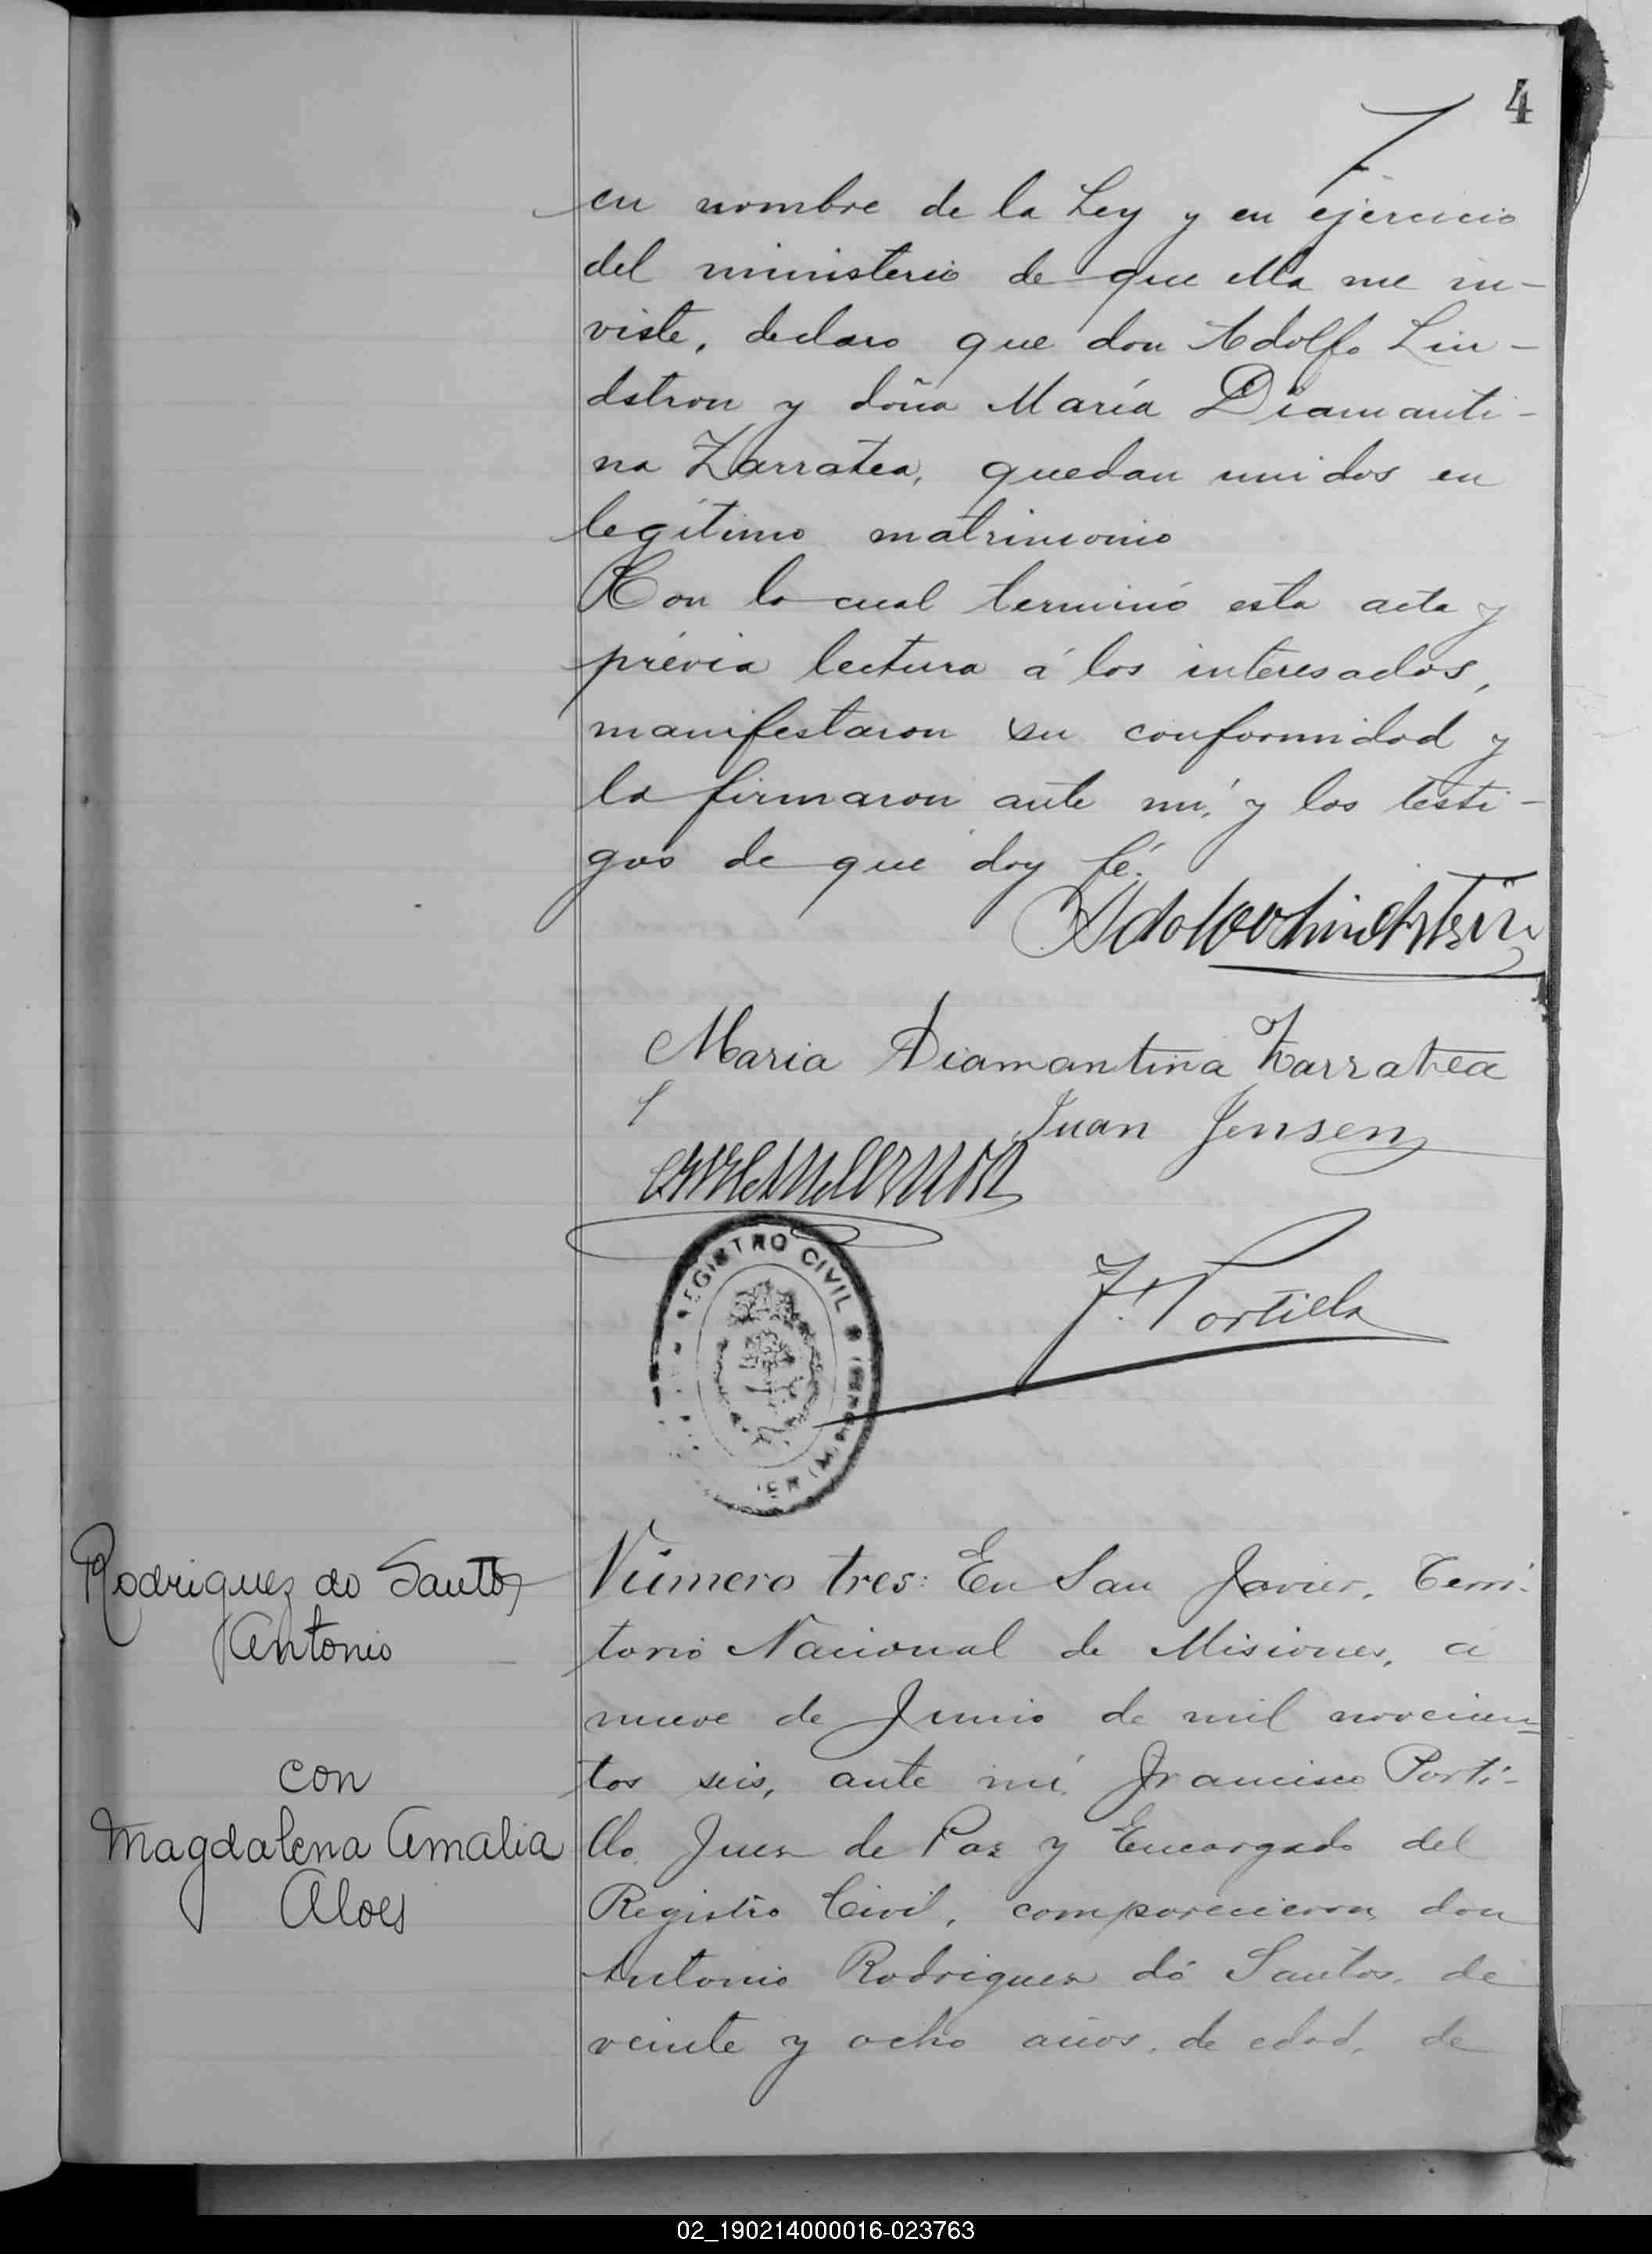 4
en nombre de la Ley y en ejercicio
del ministerio de que ella me in-
viste, declaro que don Adolfo Lin-
dstron y doña María Diamanti-
na Zarratea, quedan unidos en
legítimo matrimonio
Con lo cual terminó esta acta y
prévia lectura á los interesados,
manifestaron su conformidad y
la firmaron ante mí, y los testi-
gos de que doy fé.
Maria Diamantina Zarratea
Juan Jensen
REGISTRO CIVIL
F. Portillo
Rodriguez do Santos
Antonio
con
Magdalena Amalia
Aloes
Número tres: En San Javier, Terri-
torio Nacional de Misiones, á
nueve de Junio de mil novecien=
tos seis, ante mí, Francisco Porti-
llo, Juez de Paz y Encargado del
Registro Civil, comparecieron don
Antonio Rodriguez dó Santos, de
veinte y ocho años, de edad, de
02_190214000016-023763